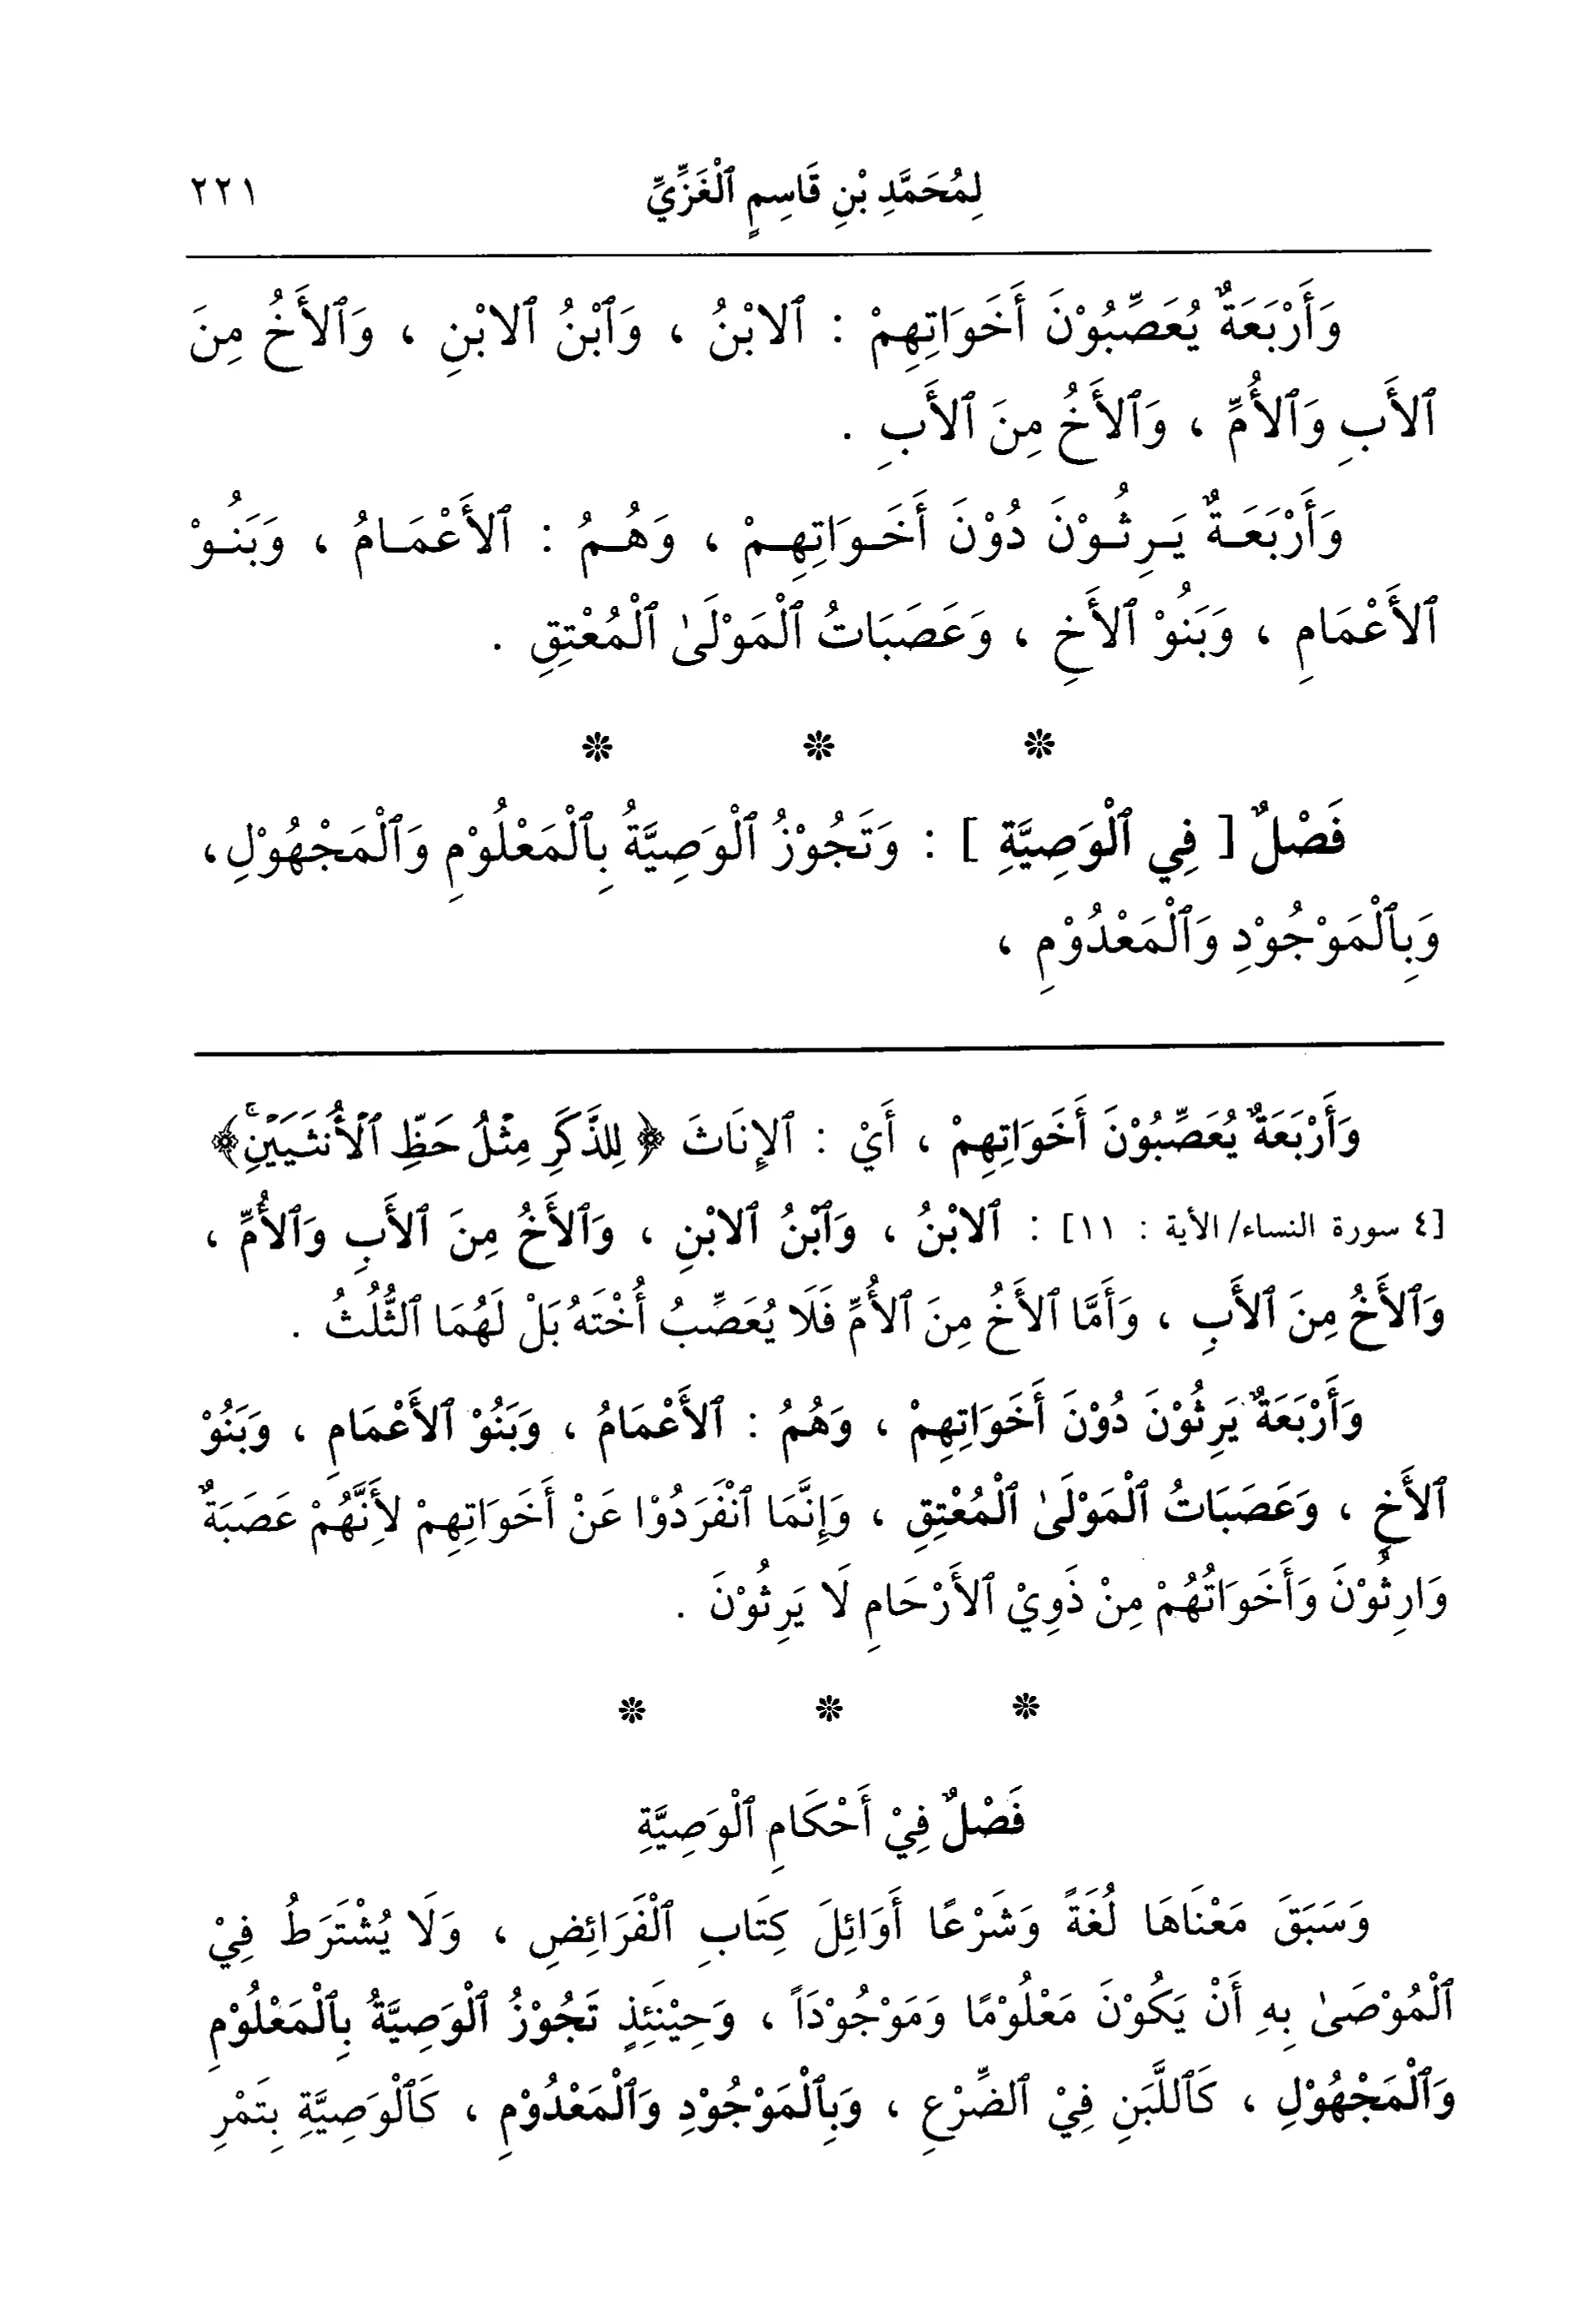 لِمُحَمَّدِ بْنِ قَاسِمٍ ٱلْغَزِّيِّ ٢٢١
وَأَرْبَعَةٌ يُعَصِّبُوْنَ أَخَوَاتِهِمْ : ٱلابْنُ ، وَٱبْنُ ٱلابْنِ ، وَٱلأَخُ مِنَ
ٱلأَبِ وَٱلأُمِّ ، وَٱلأَخُ مِنَ ٱلأَبِ .
وَأَرْبَعَةٌ يَرِثُوْنَ دُوْنَ أَخَوَاتِهِمْ ، وَهُمُ : ٱلأَعْمَامُ ، وَبَنُوْ
ٱلأَعْمَامِ ، وَبَنُوْ ٱلأَخِ ، وَعَصَبَاتُ ٱلْمَوْلَىٰ ٱلْمُعْتِقِ .
* * *
فَصْلٌ [ فِي ٱلْوَصِيَّةِ ] : وَتَجُوْزُ ٱلْوَصِيَّةُ بِٱلْمَعْلُوْمِ وَٱلْمَجْهُوْلِ،
وَبِٱلْمَوْجُوْدِ وَٱلْمَعْدُوْمِ ،
وَأَرْبَعَةٌ يُعَصِّبُوْنَ أَخَوَاتِهِمْ ، أَيْ : ٱلإِنَاثَ ﴿ لِلذَّكَرِ مِثْلُ حَظِّ ٱلْأُنثَيَيْنِۚ﴾
[٤ سورة النساء/ الأية : ١١] : ٱلابْنُ ، وَٱبْنُ ٱلابْنِ ، وَٱلأَخُ مِنَ ٱلأَبِ وَٱلأُمِّ ،
وَٱلأَخُ مِنَ ٱلأَبِ ، وَأَمَّا ٱلأَخُ مِنَ ٱلأُمِّ فَلَا يُعَصِّبُ أُخْتَهُ بَلْ لَهُمَا ٱلثُّلُثُ .
وَأَرْبَعَةٌ يَرِثُوْنَ دُوْنَ أَخَوَاتِهِمْ ، وَهُمُ : ٱلأَعْمَامُ ، وَبَنُوْ ٱلأَعْمَامِ ، وَبَنُوْ
ٱلأَخِ ، وَعَصَبَاتُ ٱلْمَوْلَىٰ ٱلْمُعْتِقِ ، وَإِنَّمَا ٱنْفَرَدُوْا عَنْ أَخَوَاتِهِمْ لأَنَّهُمْ عَصَبَةٌ
وَارِثُوْنَ وَأَخَوَاتُهُمْ مِنْ ذَوِيْ ٱلأَرْحَامِ لَا يَرِثُوْنَ .
* * *
فَصْلٌ فِيْ أَحْكَامِ ٱلْوَصِيَّةِ
وَسَبَقَ مَعْنَاهَا لُغَةً وَشَرْعًا أَوَائِلَ كِتَابِ ٱلْفَرَائِضِ ، وَلَا يُشْتَرَطُ فِيْ
ٱلْمُوْصَىٰ بِهِ أَنْ يَكُوْنَ مَعْلُوْمًا وَمَوْجُوْدَاً ، وَحِيْنَئِذٍ تَجُوْزُ ٱلْوَصِيَّةُ بِٱلْمَعْلُوْمِ
وَٱلْمَجْهُوْلِ ، كَٱللَّبَنِ فِيْ ٱلضِّرْعِ ، وَبِٱلْمَوْجُوْدِ وَٱلْمَعْدُوْمِ ، كَٱلْوَصِيَّةِ بِتَمْرِ